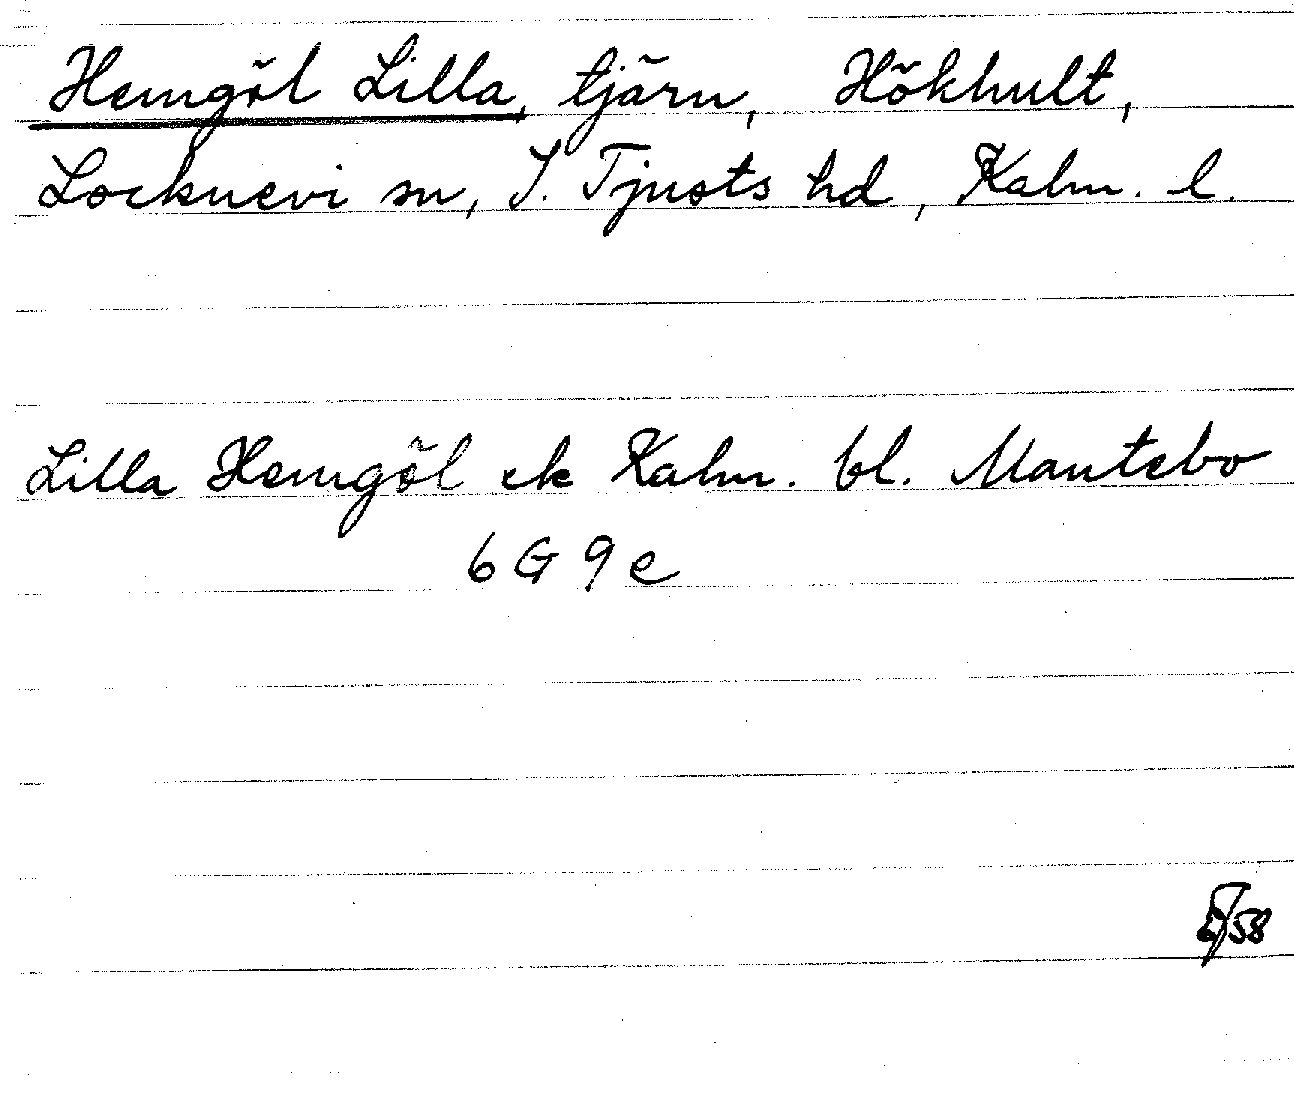 Hemgöl Lilla, tjärn, Hökhult,
Locknevi sn, S. Tjusts hd, Kalm. l.
Lilla Hemgöl ek Kalm. bl. Mantebo
6 G 9 e
58